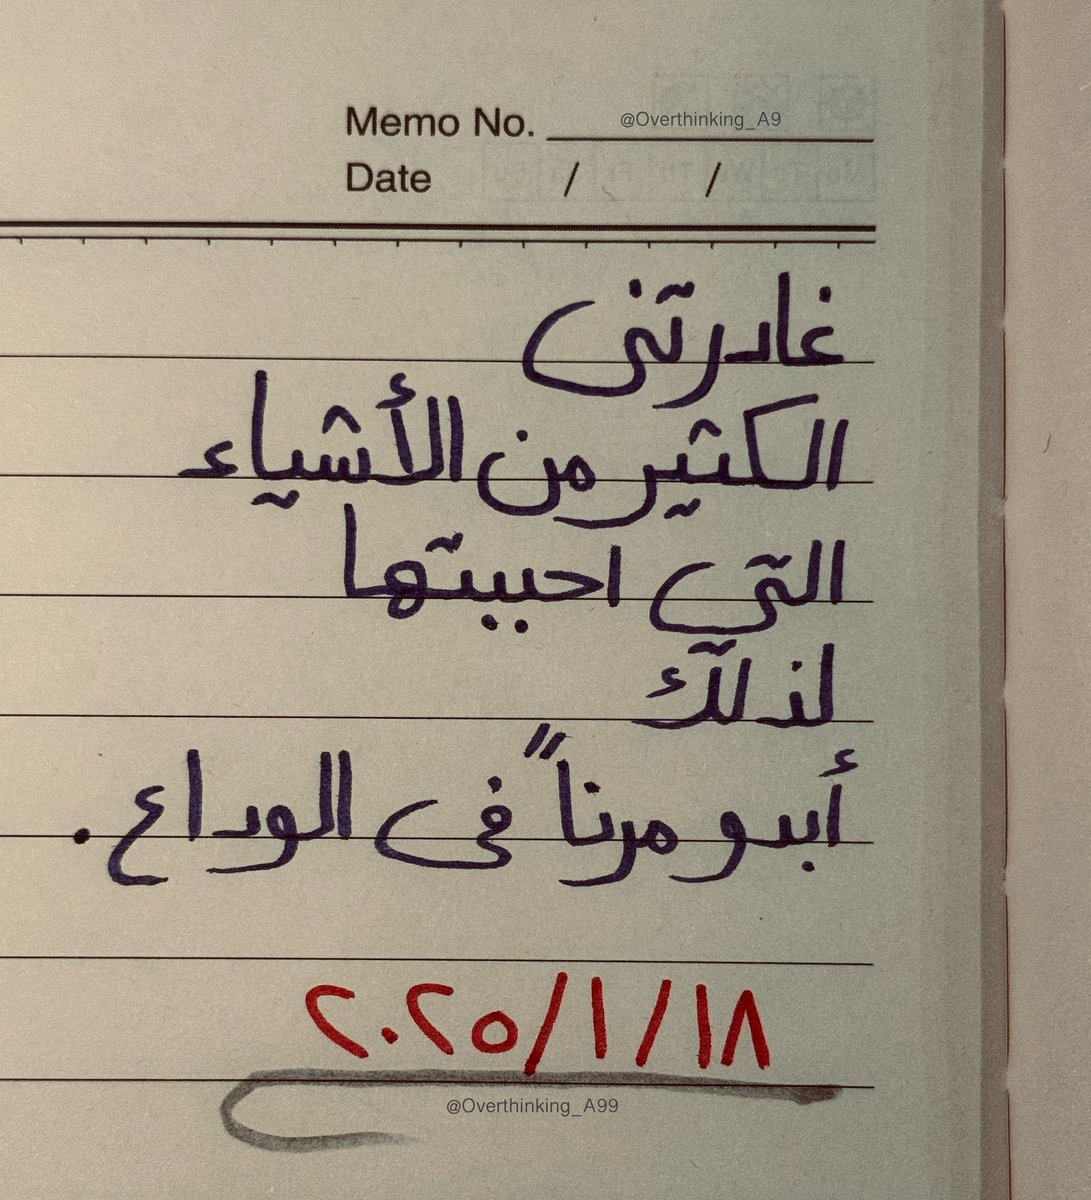 Memo No. @Overthinking_A9
Date / /
غادرتني
الكثير من الأشياء
التي احببتها
لذلك
أبدو مرناً في الوداع.
٢٠٢٥/١/١٨
@Overthinking_A99